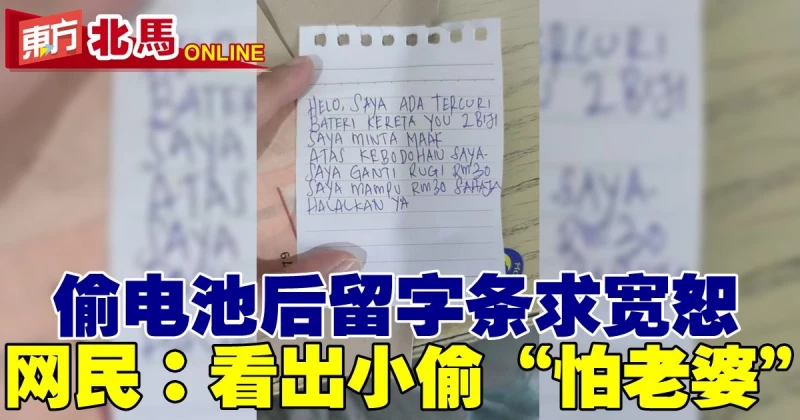 東方 北馬 ONLINE
HELO, SAYA ADA TERCURI
BATERI KERETA YOU 2 BIJI
SAYA MINTA MAAF
ATAS KEBODOHAN SAYA.
SAYA GANTI RUGI RM30
SAYA MAMPU RM30 SAHAJA
HALALKAN YA
偷电池后留字条求宽恕
网民：看出小偷“怕老婆”